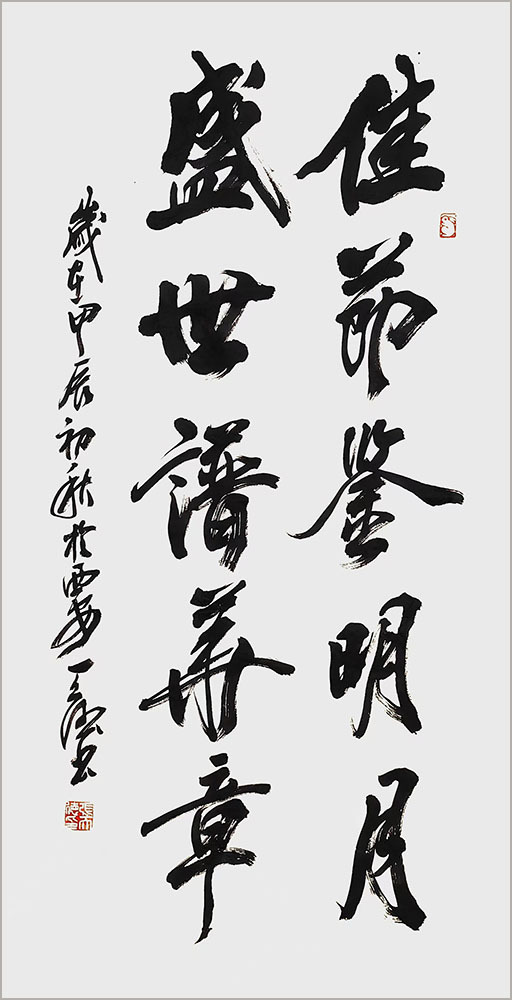 佳節鑒明月
盛世譜華章
歲在甲辰初秋於西安